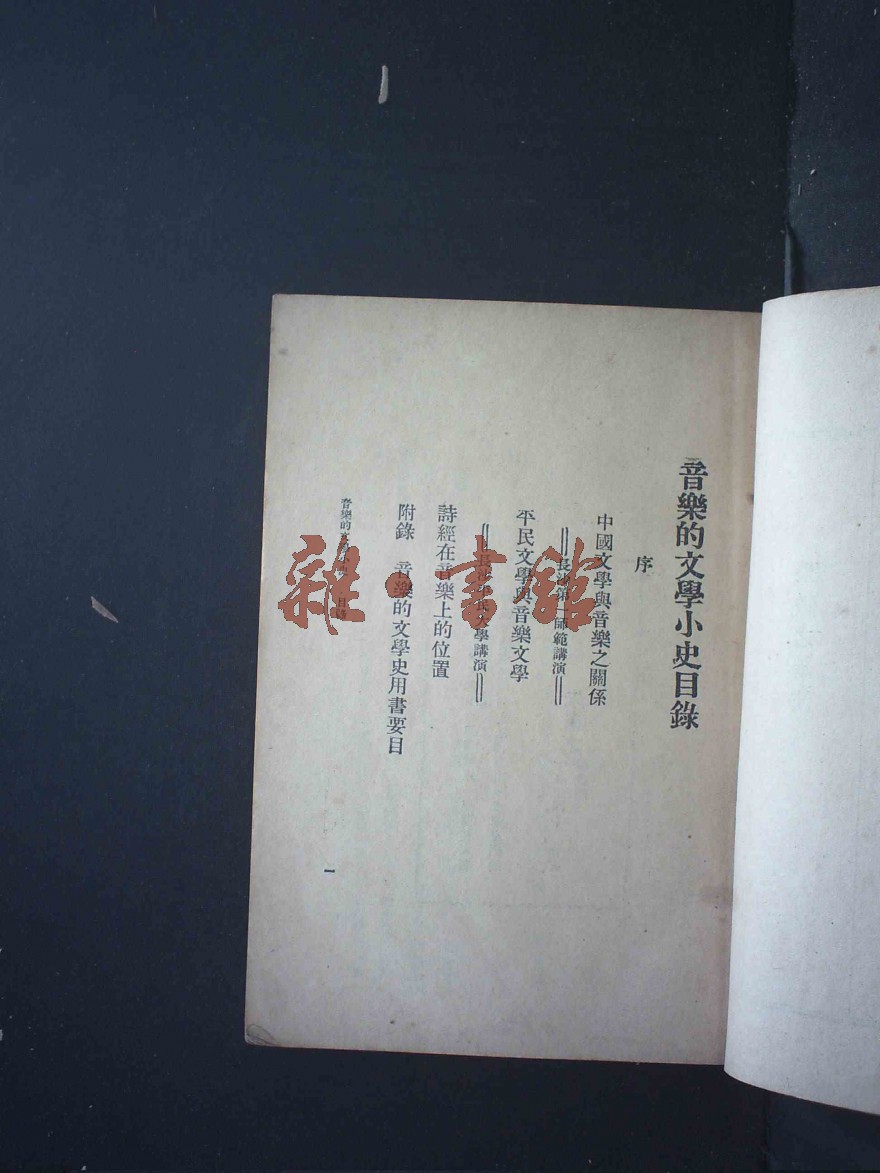 音樂的文學小史目錄
序
中國文學與音樂之關係
||長沙第一師範講演||
平民文學與音樂文學
||長沙平民大學講演||
詩經在音樂上的位置
附錄　音樂的文學史用書要目
音樂的文學小史　目錄
一
雜·書館